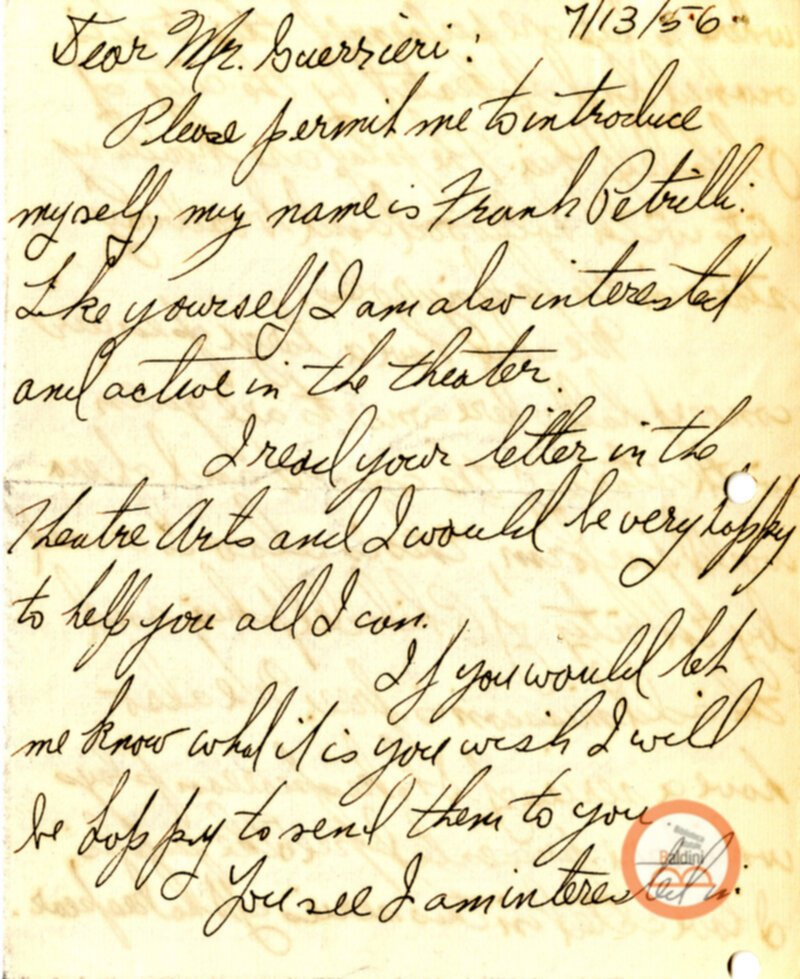 7/13/56
Dear Mr. Guerrieri:
Please permit me to introduce
myself, my name is Frank Petrilli.
Like yourself I am also interested
and active in the theater.
I read your letter in the
Theatre Arts and I would be very happy
to help you all I can.
If you would let
me know what it is you wish I will
be happy to send them to you
You see I am interested in
Biblioteca
Baldini